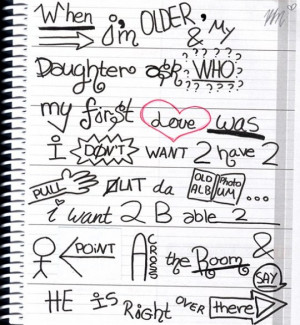 When i'm OLDER, & MY
Daughter ask ????? WHO ?????
my first Love was
I DON'T WANT 2 have 2
PULL OUT da OLD Photo ALBUM ...
i want 2 B able 2
POINT ACROSS the Room &
SAY
HE iS Right OVER there